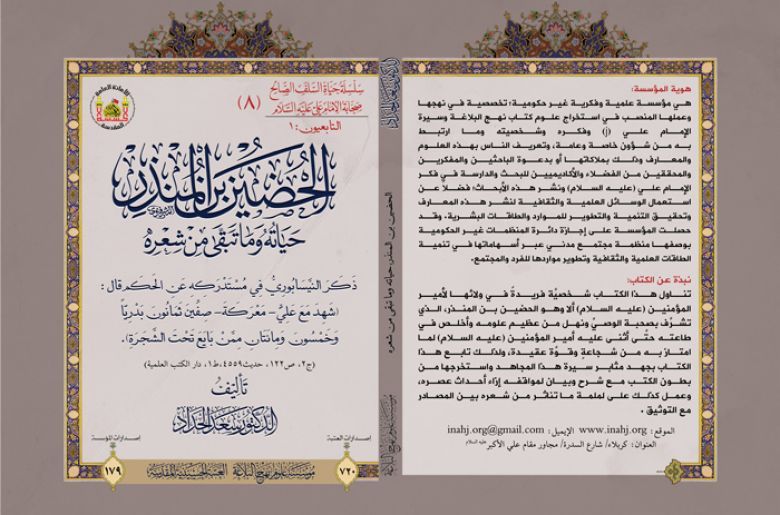 سلسلة حياة السلف الصالح
صحابة الإمام علي عليه السلام
(٨)
التابعيون: ١
الحُضَين بن المُنذِر
حياته وما تبقى من شعره
ذَكَرَ النَّيْسابوريُّ في مُسْتَدْرَكِهِ عَنِ الحَكَمِ قال:
(شَهِدَ مَعَ عَليٍّ - مَعْرَكَةَ - صِفِّين ثَمَانُونَ بَدْرِيّاً
وَخَمْسُونَ وَمِائَتَانِ مِمَّنْ بَايَعَ تَحْتَ الشَّجَرَةِ).
(ج٢، ص١٢٢، حديث٤٥٥٩، ط١، دار الكتب العلمية)
تأليف
الدكتور سعد الحداد
إصدارات المؤسسة
١٧٩
إصدارات العتبة
٧٢٠
مؤسسة علوم نهج البلاغة العتبة الحسينية المقدسة
الدكتور سعد الحداد
الحضين بن المنذر حياته وما تبقى من شعره
مؤسسة علوم نهج البلاغة
هوية المؤسسة:
هي مؤسسة علمية وفكرية غير حكومية؛ تخصصية في نهجها
وعملها المنصب في استخراج علوم كتاب نهج البلاغة وسيرة
الإمام علي (j) وفكره وشخصيته وما ارتبط
به من شؤون خاصة وعامة، وتعريف الناس بهذه العلوم
والمعارف وذلك بملاكاتها أو بدعوة الباحثين والمفكرين
والمحققين من الفضلاء والأكاديميين للبحث والدارسة في فكر
الإمام علي (عليه السلام) ونشر هذه الأبحاث؛ فضلاً عن
استعمال الوسائل العلمية والثقافية لنشر هذه المعارف
وتحقيق التنمية والتطوير للموارد والطاقات البشرية. وقد
حصلت المؤسسة على إجازة دائرة المنظمات غير الحكومية
بوصفها منظمة مجتمع مدني عبر أسهاماتها في تنمية
الطاقات العلمية والثقافية وتطوير مواردها للفرد والمجتمع.
نبذة عن الكتاب:
تناول هذا الكتاب شخصيّة فريدةً في ولائها لأمير
المؤمنين (عليه السلام) ألا وهو الحضين بن المنذر، الذي
تشرّف بصحبة الوصيّ ونهل من عظيم علومه وأخلص في
طاعته حتّى أثنى عليه أمير المؤمنين (عليه السلام) لما
امتاز به من شجاعةٍ وقوّة عقيدة، ولذلك تابع هذا
الكتاب بجهد مثابر سيرة هذا المجاهد واستخرجها من
بطون الكتب مع شرح وبيان لمواقفه إزاء أحداث عصره،
وعمل كذلك على لملمة ما تناثر من شعره بين المصادر
مع التوثيق.
الموقع: www.inahj.org الإيميل: inahj.org@gmail.com
العنوان: كربلاء/ شارع السدرة/ مجاور مقام علي الأكبر عليه السلام